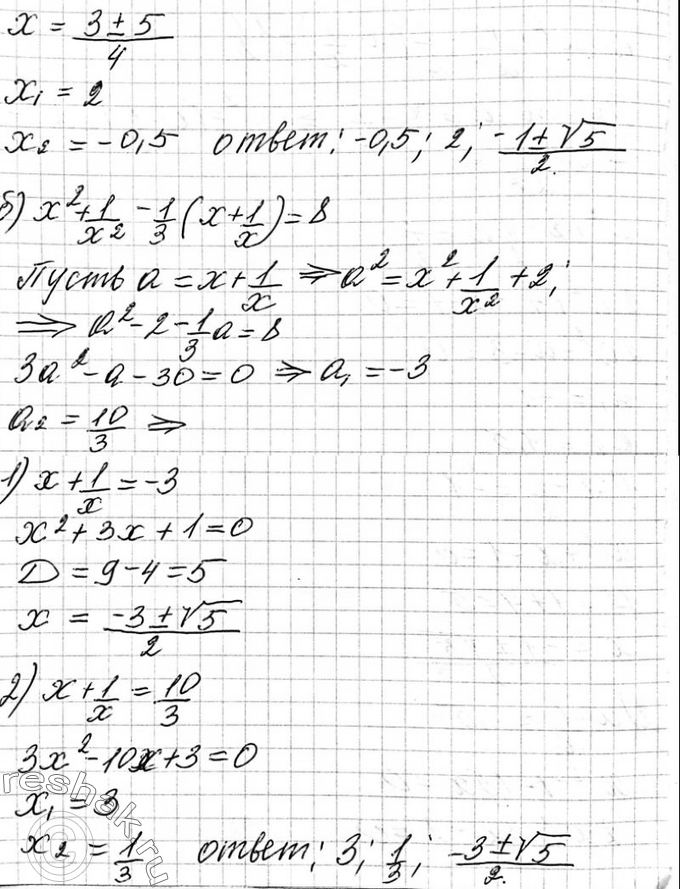 x = (3 ± 5)/4
x₁ = 2
x₂ = -0,5 ответ: -0,5; 2; (-1±√5)/2.
б) x² + 1/x² - 1/3 (x + 1/x) = 8
Пусть a = x + 1/x ⇒ a² = x² + 1/x² + 2;
⇒ a² - 2 - 1/3 a = 8
3a² - a - 30 = 0 ⇒ a₁ = -3
a₂ = 10/3 ⇒
1) x + 1/x = -3
x² + 3x + 1 = 0
D = 9 - 4 = 5
x = (-3 ± √5)/2
2) x + 1/x = 10/3
3x² - 10x + 3 = 0
x₁ = 3
x₂ = 1/3 ответ: 3; 1/3; (-3±√5)/2.
reshak.ru